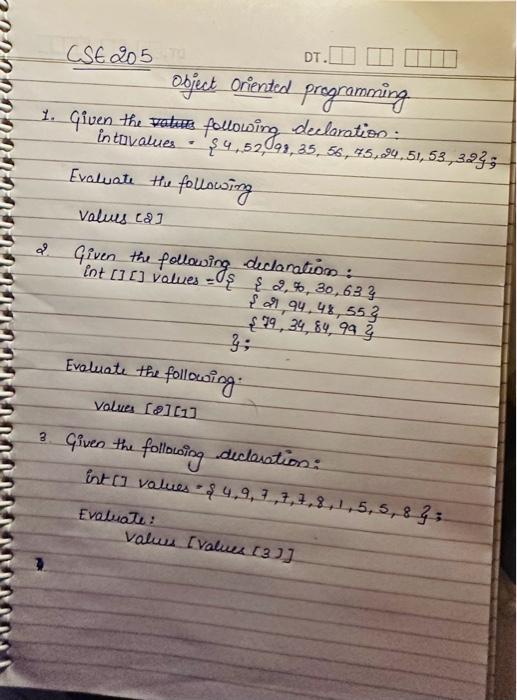 CSE 205
DT.
Object Oriented programming
1. Given the following declaration:
int[] values = {4, 52, 98, 35, 56, 75, 24, 51, 53, 32};
Evaluate the following
values [2]
2. Given the following declaration:
int [] [] values = { { 2, 30, 63 }
{ 21, 94, 48, 55 }
{ 79, 34, 84, 99 }
};
Evaluate the following:
values [2] [1]
3 Given the following declaration:
int [] values = { 4, 9, 7, 7, 7, 8, 1, 5, 5, 8 };
Evaluate:
values [values [3]]